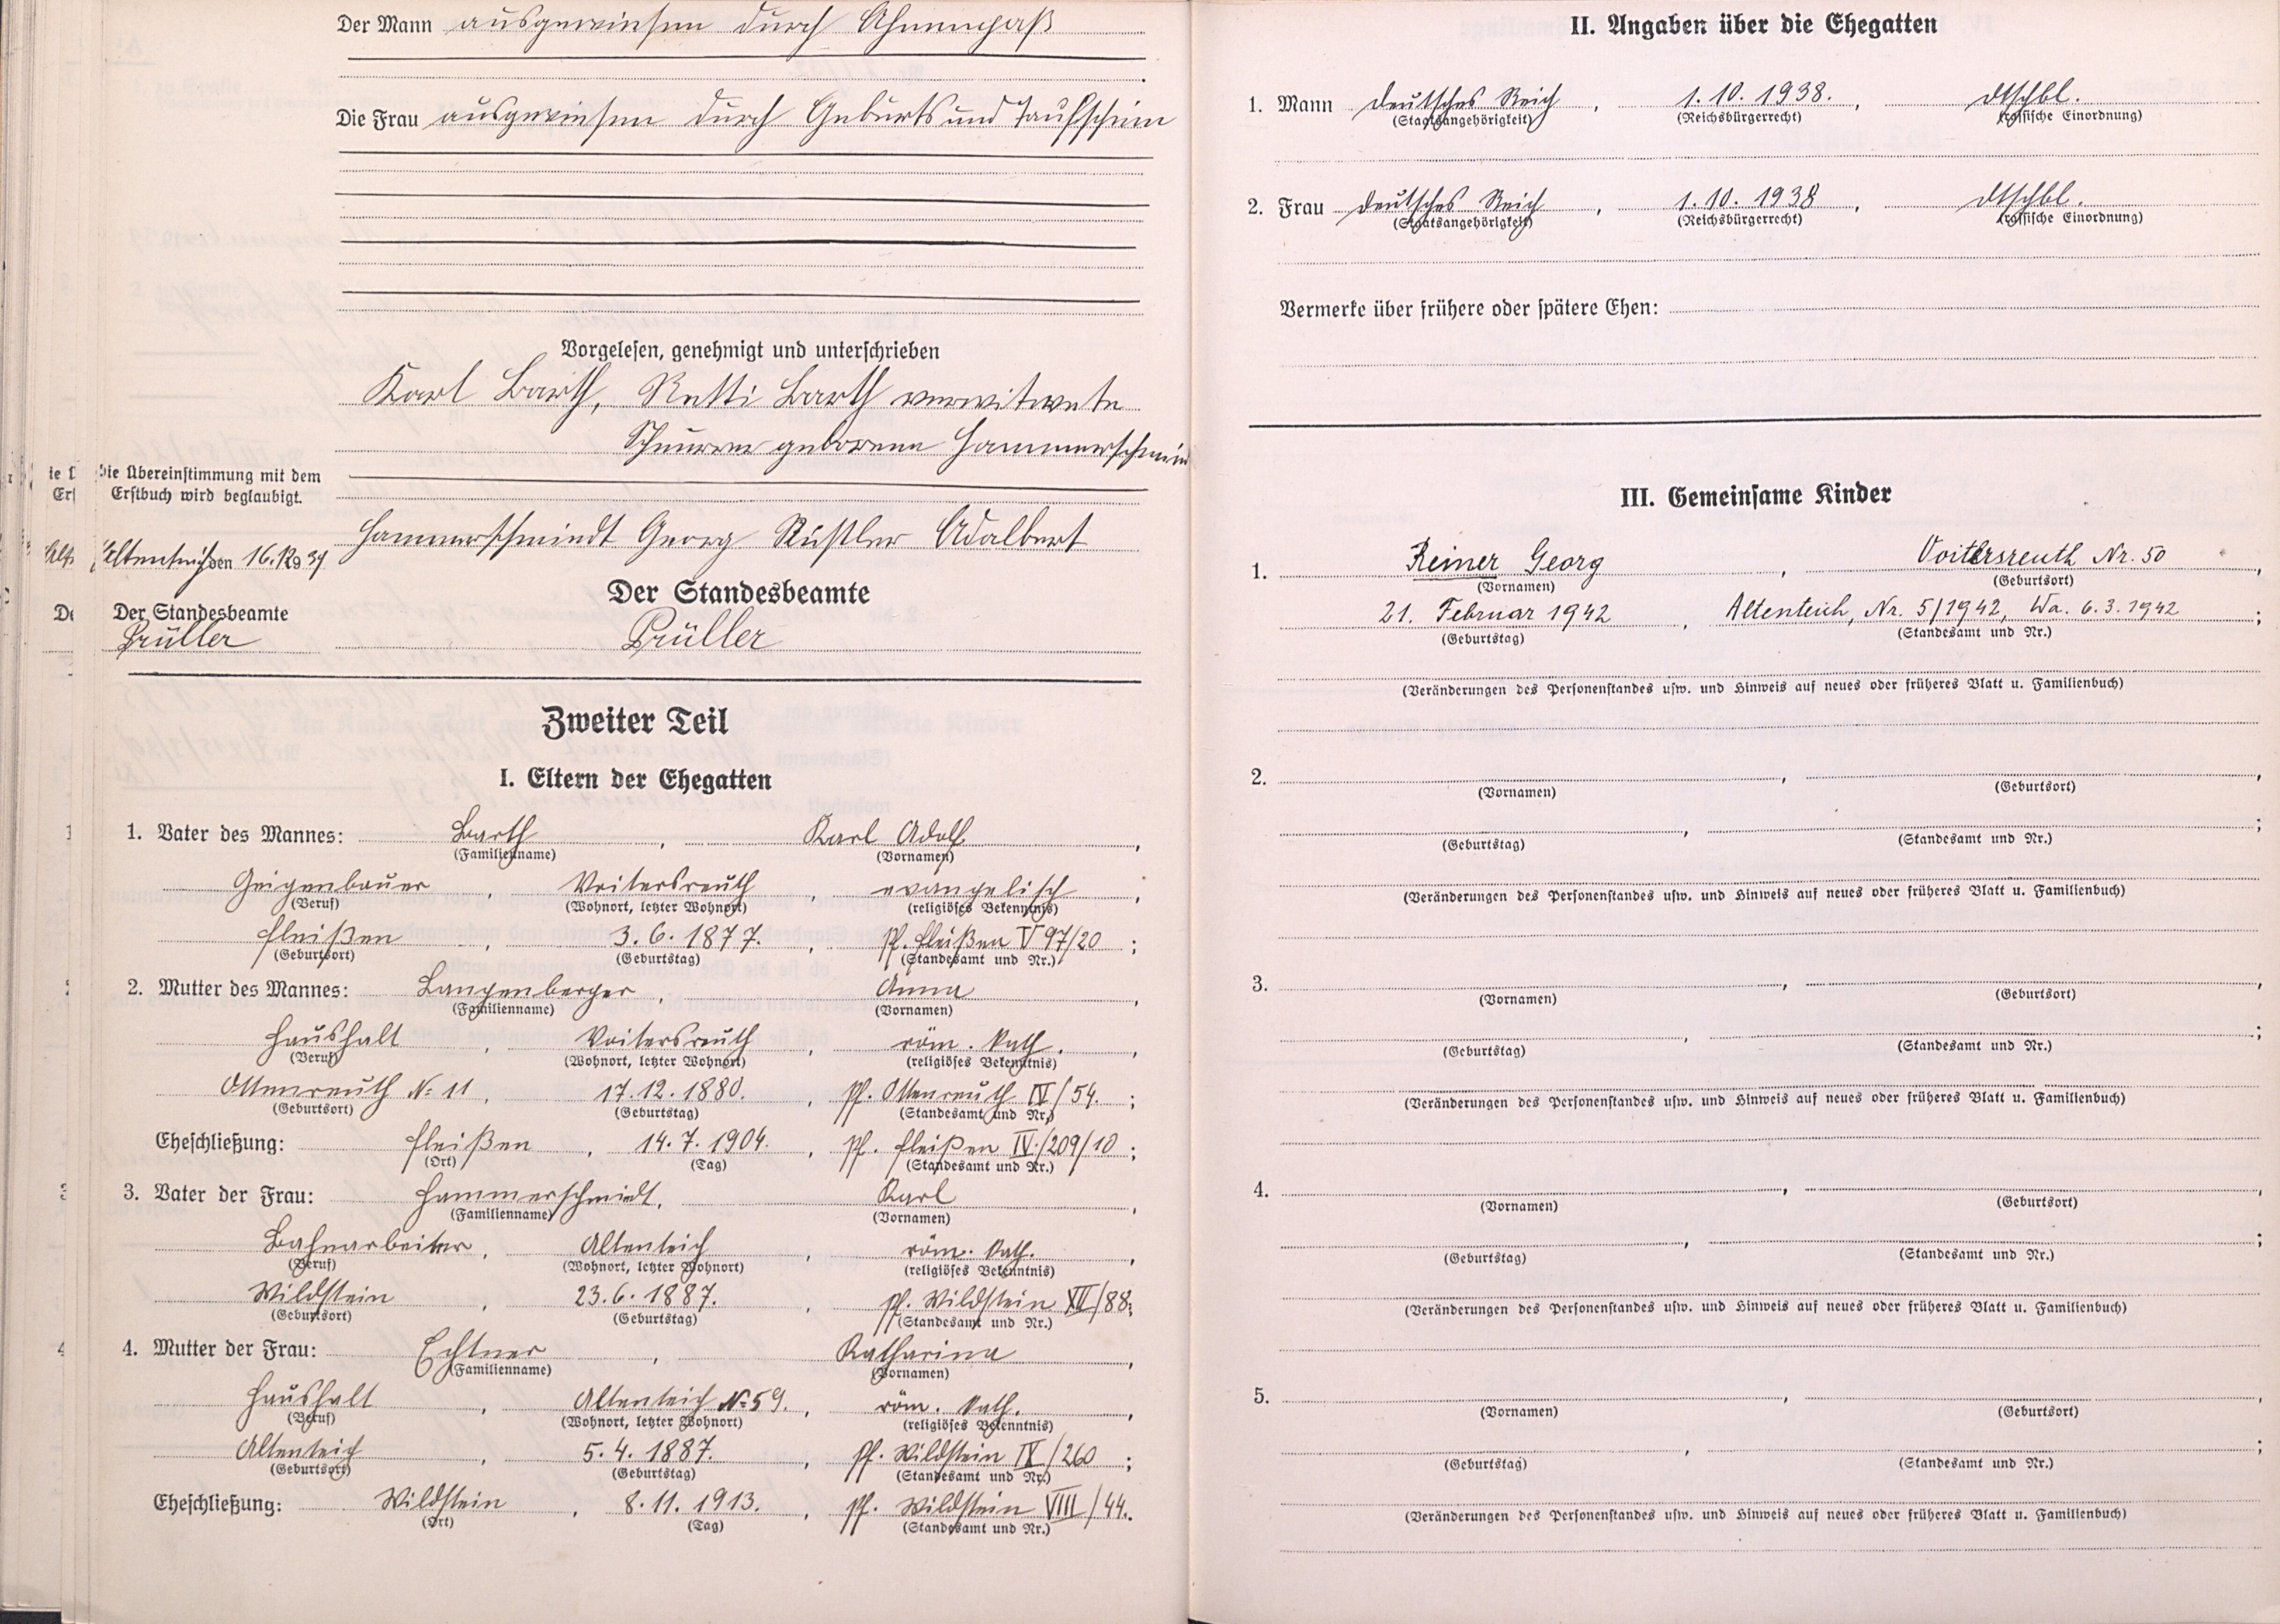 Der Mann ausgewiesen durch Ahnenpaß
Die Frau ausgewiesen durch Geburts und Taufschein
Vorgelesen, genehmigt und unterschrieben
Karl Barth, Retti Barth verwitwete
Scheurer geborene Hammerschmied
Die Übereinstimmung mit dem
Erstbuch wird beglaubigt.
Hammerschmiedt Georg Rustler Adalbert
Altenteich den 16.12.1939
Der Standesbeamte
Prüller
Der Standesbeamte
Prüller
Zweiter Teil
I. Eltern der Ehegatten
1. Vater des Mannes: Barth, Karl Adolf,
(Familienname) (Vornamen)
Geigenbauer, Voitersreuth, evangelisch,
(Beruf) (Wohnort, letzter Wohnort) (religiöses Bekenntnis)
Fleißen, 3.6.1877., Pf. Fleißen V 97/20;
(Geburtsort) (Geburtstag) (Standesamt und Nr.)
2. Mutter des Mannes: Langenberger, Anna,
(Familienname) (Vornamen)
Haushalt, Voitersreuth, röm. kath.,
(Beruf) (Wohnort, letzter Wohnort) (religiöses Bekenntnis)
Ottenreuth № 11, 17.12.1880., Pf. Ottenreuth IV/54.;
(Geburtsort) (Geburtstag) (Standesamt und Nr.)
Eheschließung: Fleißen, 14.7.1904., Pf. Fleißen IV/209/10;
(Ort) (Tag) (Standesamt und Nr.)
3. Vater der Frau: Hammerschmiedt, Karl,
(Familienname) (Vornamen)
Bahnarbeiter, Altenteich, röm. kath.,
(Beruf) (Wohnort, letzter Wohnort) (religiöses Bekenntnis)
Wildstein, 23.6.1887., Pf. Wildstein XII/88;
(Geburtsort) (Geburtstag) (Standesamt und Nr.)
4. Mutter der Frau: Echtner, Katharina,
(Familienname) (Vornamen)
Haushalt, Altenteich № 59., röm. kath.,
(Beruf) (Wohnort, letzter Wohnort) (religiöses Bekenntnis)
Altenteich, 5.4.1887., Pf. Wildstein IX/260;
(Geburtsort) (Geburtstag) (Standesamt und Nr.)
Eheschließung: Wildstein, 8.11.1913., Pf. Wildstein VIII/44.
(Ort) (Tag) (Standesamt und Nr.)
II. Angaben über die Ehegatten
1. Mann deutsches Reich, 1.10.1938., dtschbl.
(Staatsangehörigkeit) (Reichsbürgerrecht) (rassische Einordnung)
2. Frau deutsches Reich, 1.10.1938, dtschbl.
(Staatsangehörigkeit) (Reichsbürgerrecht) (rassische Einordnung)
Vermerke über frühere oder spätere Ehen:
III. Gemeinsame Kinder
1. Reiner Georg, Voitersreuth Nr. 50,
(Vornamen) (Geburtsort)
21. Februar 1942, Altenteich, Nr. 5/1942, Wa. 6.3.1942;
(Geburtstag) (Standesamt und Nr.)
(Veränderungen des Personenstandes usw. und Hinweis auf neues oder früheres Blatt u. Familienbuch)
2.
(Vornamen) (Geburtsort)
(Geburtstag) (Standesamt und Nr.)
(Veränderungen des Personenstandes usw. und Hinweis auf neues oder früheres Blatt u. Familienbuch)
3.
(Vornamen) (Geburtsort)
(Geburtstag) (Standesamt und Nr.)
(Veränderungen des Personenstandes usw. und Hinweis auf neues oder früheres Blatt u. Familienbuch)
4.
(Vornamen) (Geburtsort)
(Geburtstag) (Standesamt und Nr.)
(Veränderungen des Personenstandes usw. und Hinweis auf neues oder früheres Blatt u. Familienbuch)
5.
(Vornamen) (Geburtsort)
(Geburtstag) (Standesamt und Nr.)
(Veränderungen des Personenstandes usw. und Hinweis auf neues oder früheres Blatt u. Familienbuch)